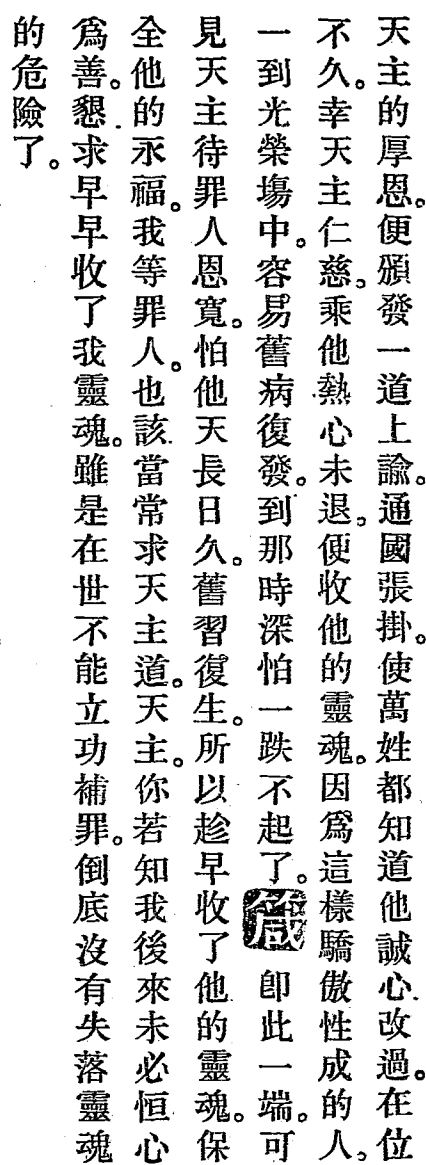 天主的厚恩。便頒發一道上諭。通國張掛。使萬姓都知道他誠心改過。在位
不久。幸天主仁慈。乘他熱心未退。便收他的靈魂。因爲這樣驕傲性成的人。
一到光榮塲中。容易舊病復發。到那時深怕一跌不起了。箴卽此一端。可
見天主待罪人恩寬。怕他天長日久。舊習復生。所以趁早收了他的靈魂。保
全他的永福。我等罪人。也該當常求天主道。天主。你若知我後來未必恒心
爲善。懇求早早收了我靈魂。雖是在世不能立功補罪。倒底沒有失落靈魂
的危險了。